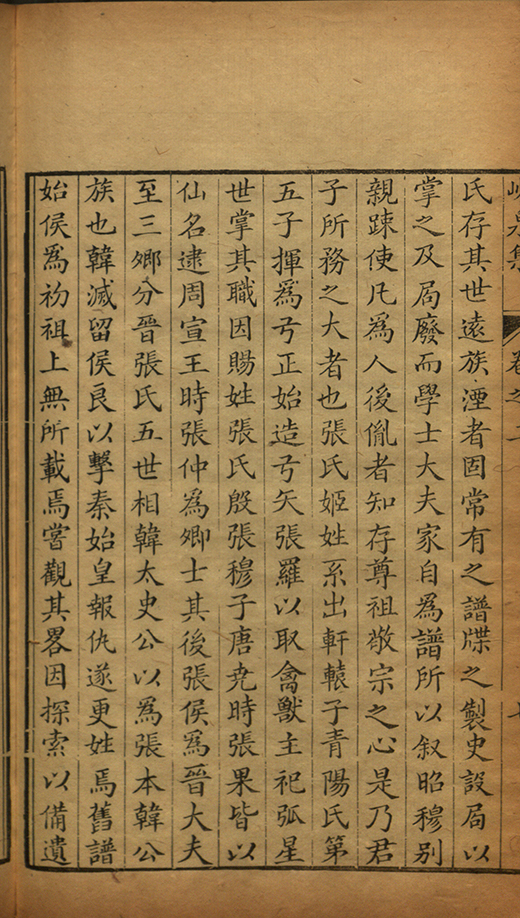 峴泉集 卷之二
氏存其世遠族湮者因常有之譜牒之製史設局以
掌之及局廢而學士大夫家自為譜所以叙昭穆别
親踈使凡為人後胤者知存尊祖敬宗之心是乃君
子所務之大者也張氏姬姓系出軒轅子青陽氏第
五子揮為弓正始造弓矢張羅以取禽獸主祀弧星
世掌其職因賜姓張氏殷張穆子唐尭時張果皆以
仙名逮周宣王時張仲為卿士其後張侯為晉大夫
至三卿分晉張氏五世相韓太史公以為張本韓公
族也韓滅留侯良以擊秦始皇報仇遂更姓焉舊譜
始侯為初祖上無所載焉嘗觀其畧因探索以備遺